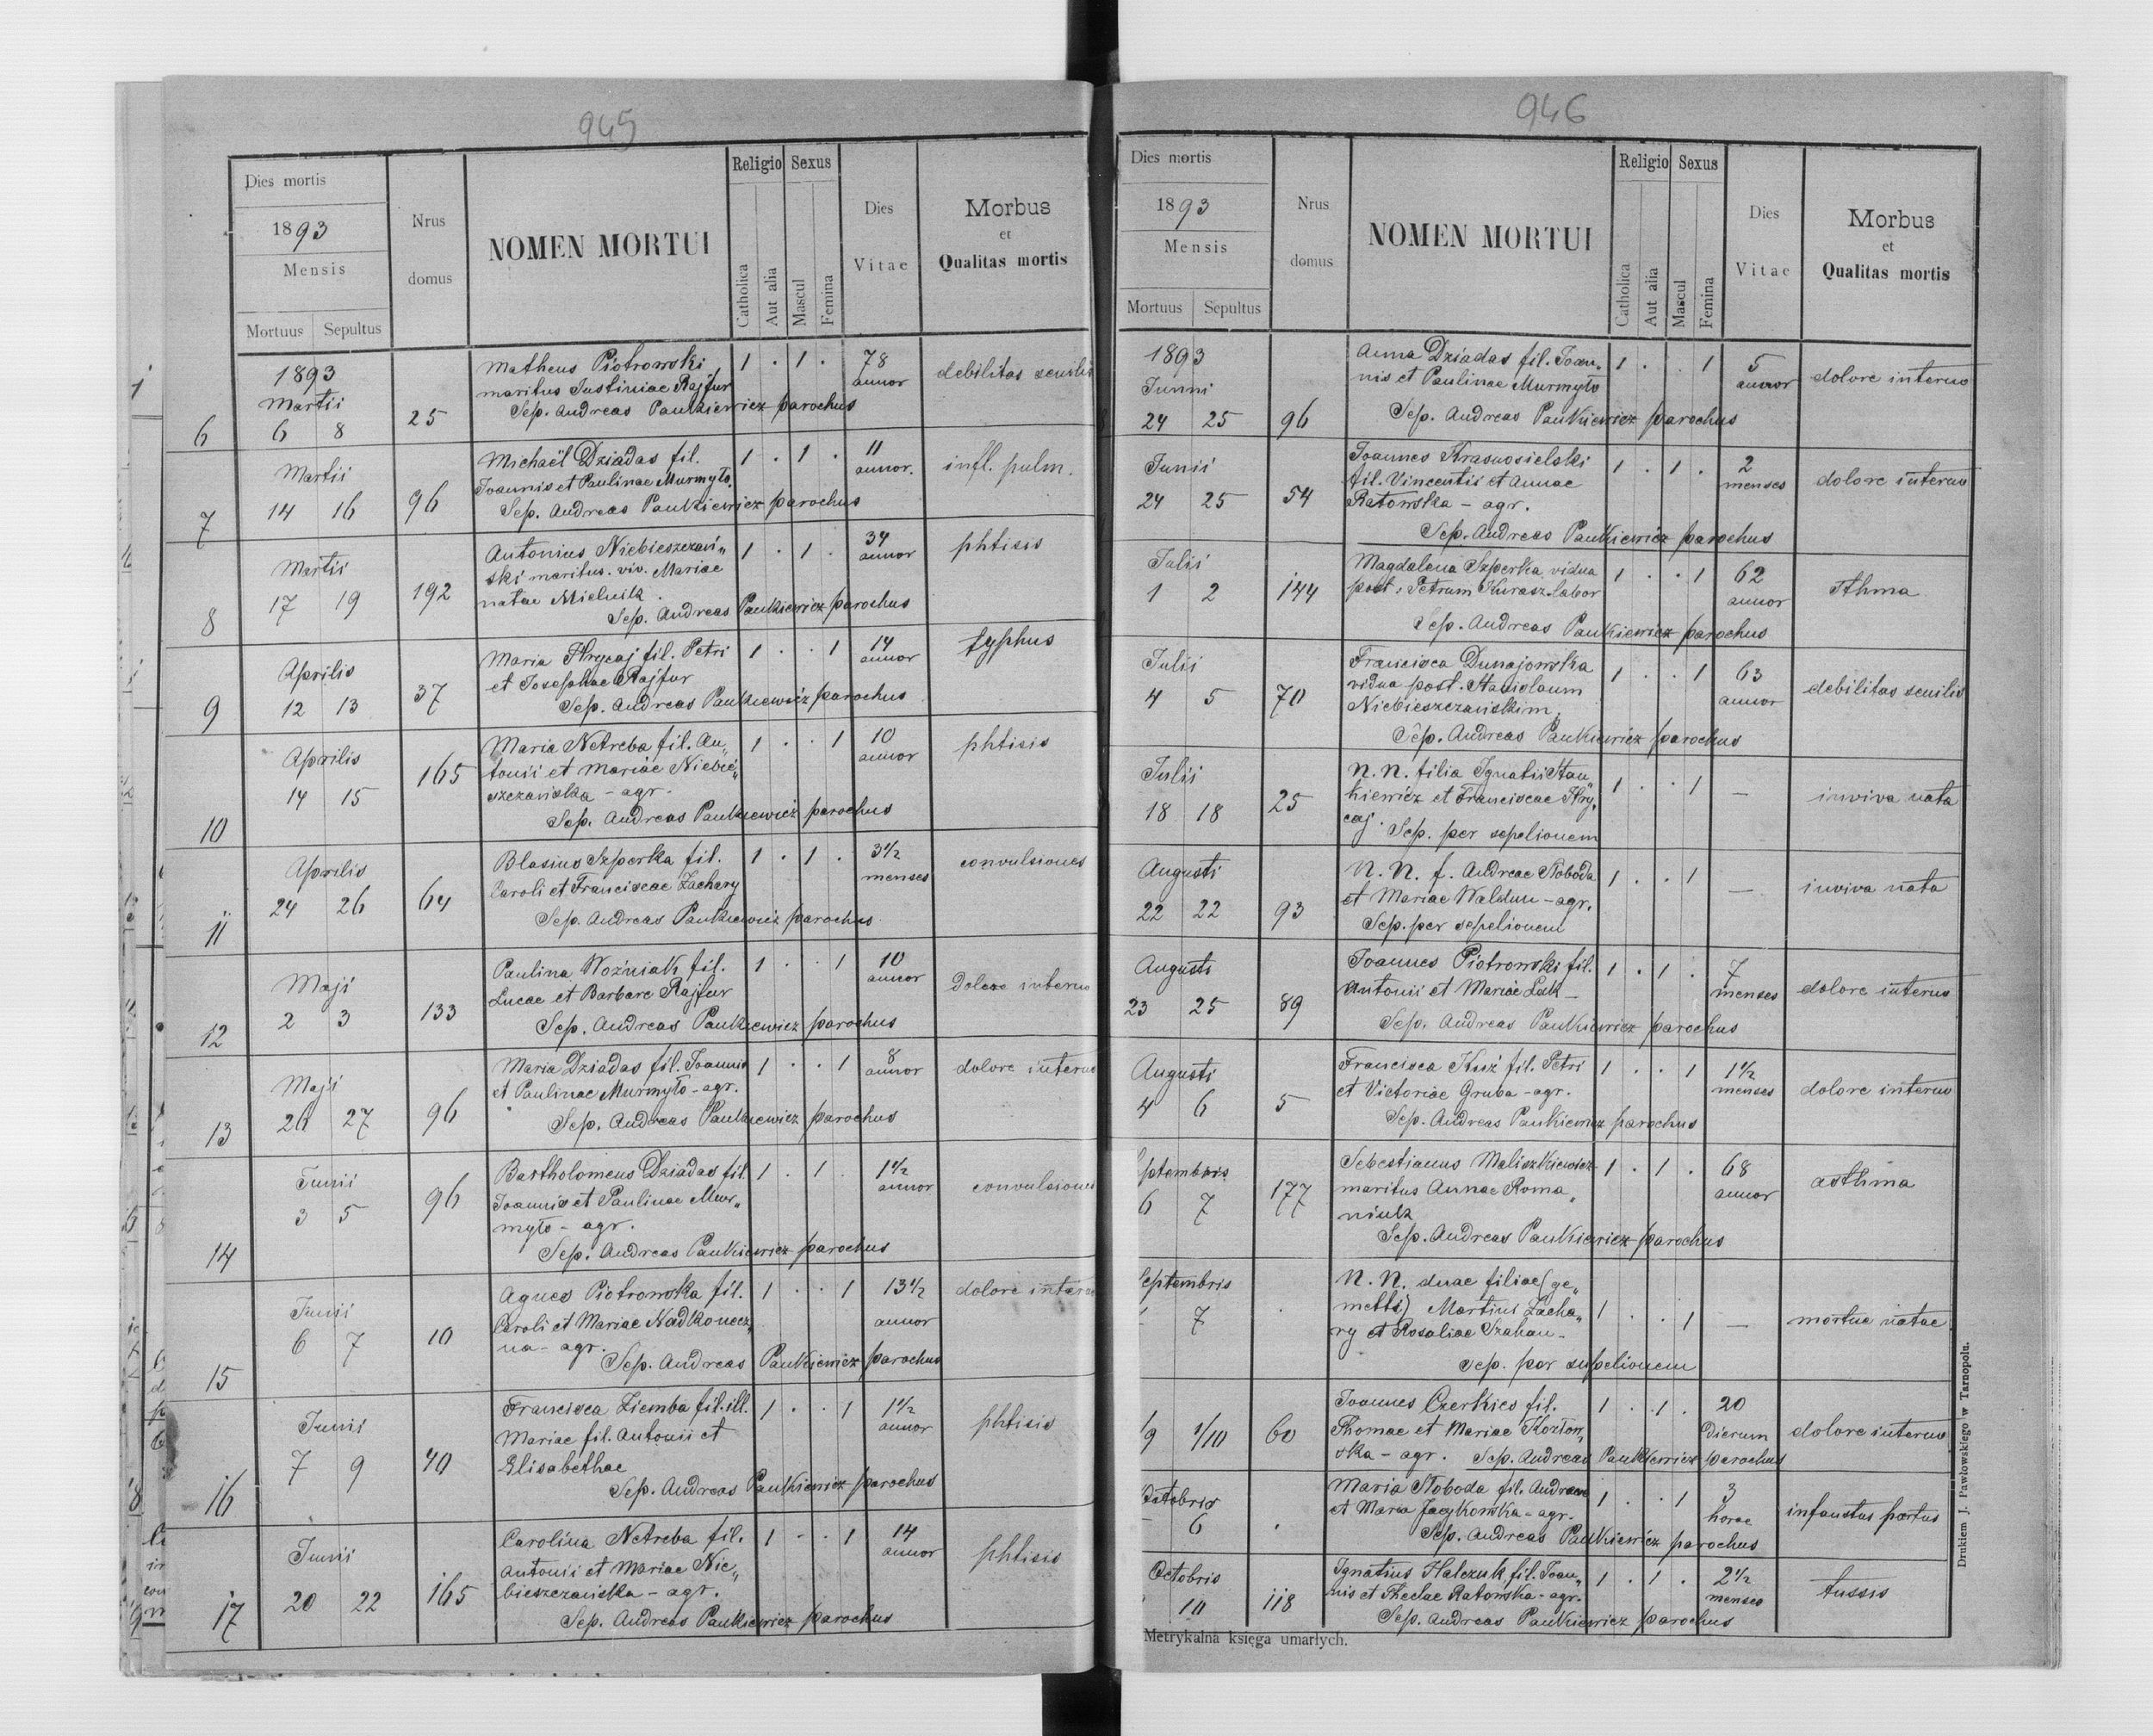 945
Dies mortis
1893
Mensis
Mortuus Sepultus
Nrus domus
NOMEN MORTUI
Religio Sexus
Catholica Aut alia Mascul Femina
Dies Vitae
Morbus
et
Qualitas mortis
1893
Martii
6 6 8 25
Matheus Piotrowski 1 . 1 . 78 annor debilitas senilis
maritus Justiniae Rajfur
Sep. Andreas Pankiewicz parochus
Martii
7 14 16 96
Michaël Dziadas fil. 1 . 1 . 11 annor. infl. pulm.
Joannis et Paulinae Murmyło.
Sep. Andreas Pankiewicz parochus
Martii
8 17 19 192
Antonius Niebieszczań„ 1 . 1 . 34 annor phtisis
ski maritus. viv. Mariae
natae Mielnik.
Sep. Andreas Pankiewicz parochus
Aprilis
9 12 13 37
Maria Hrycaj fil. Petri 1 . . 1 14 annor typhus
et Josephae Rajfur
Sep. Andreas Pankiewicz parochus
Aprilis
10 14 15 165
Maria Netreba fil. An„ 1 . . 1 10 annor phtisis
tonii et Mariae Niebie„
szczańska - agr.
Sep. Andreas Pankiewicz parochus
Aprilis
11 24 26 64
Blasius Szperka fil. 1 . 1 . 3 1/2 menses convulsiones
Caroli et Franciscae Zachary
Sep. Andreas Pankiewicz parochus
Maji
12 2 3 133
Paulina Woźniak fil. 1 . . 1 10 annor Dolore interno
Lucae et Barbare Rajfur
Sep. Andreas Pankiewicz parochus
Maji
13 26 27 96
Maria Dziadas fil. Joannis 1 . . 1 8 annor dolore interno
et Paulinae Murmyło - agr.
Sep. Andreas Pankiewicz parochus
Junii
14 3 5 96
Bartholomeus Dziadas fil. 1 . 1 . 1 1/2 annor convulsiones
Joannis et Paulinae Mur„
myło - agr.
Sep. Andreas Pankiewicz parochus
Junii
15 6 7 10
Agnes Piotrowska fil. 1 . . 1 13 1/2 annor dolore interno
Caroli et Mariae Nadkonecz„
na - agr.
Sep. Andreas Pankiewicz parochus
Junii
16 7 9 40
Francisca Ziemba fil. ill. 1 . . 1 1 1/2 annor phtisis
Mariae fil. Antonii et
Elisabethae
Sep. Andreas Pankiewicz parochus
Junii
17 20 22 165
Carolina Netreba fil. 1 . . 1 14 annor phtisis
Antonii et Mariae Nie„
bieszczańska - agr.
Sep. Andreas Pankiewicz parochus
946
Dies mortis
1893
Mensis
Mortuus Sepultus
Nrus domus
NOMEN MORTUI
Religio Sexus
Catholica Aut alia Mascul Femina
Dies Vitae
Morbus
et
Qualitas mortis
1893
Junni
24 25 96
Anna Dziadas fil. Joan„ 1 . . 1 5 annor dolore interno
nis et Paulinae Murmyło
Sep. Andreas Pankiewicz parochus
Junii
24 25 54
Joannes Krasnosielski 1 . 1 . 2 menses dolore interno
fil. Vincentii et Annae
Ratowska - agr.
Sep. Andreas Pankiewicz parochus
Julii
1 2 144
Magdalena Szperka vidua 1 . . 1 62 annor Athma
post. Petrum Kurasz. labor
Sep. Andreas Pankiewicz parochus
Julii
4 5 70
Francisca Dunajowska 1 . . 1 63 annor debilitas senilis
vidua post. Stanislaum
Niebieszczańskim.
Sep. Andreas Pankiewicz parochus
Julii
18 18 25
N. N. filia Ignatii Stan„ 1 . . 1 — inviva nata
kiewicz et Franciscae Hry„
caj. Sep. per sepelionem
Augusti
22 22 93
N. N. f. Andreae Słoboda 1 . . 1 — inviva nata
et Mariae Waldun - agr.
Sep. per sepelionem
Augusti
23 25 89
Joannes Piotrowski fil. 1 . 1 . 7 menses dolore interno
Antonii et Mariae Lak -
Sep. Andreas Pankiewicz parochus
Augusti
4 6 5
Francisca Kuź fil. Petri 1 . . 1 1 1/2 menses dolore interno
et Victoriae Gruba - agr.
Sep. Andreas Pankiewicz parochus
eptembris
6 7 177
Sebestianus Maliszkiewicz 1 . 1 . 68 annor asthma
maritus Annae Roma„
niuk
Sep. Andreas Pankiewicz parochus
eptembris
7 .
N. N. duae filiae (ge„
melli) Martini Zacha„ 1 . . 1 — mortue natae
ry et Rosaliae Szahan -
sep. per sepelionem
/9 1/10 60
Joannes Czerkies fil. 1 . 1 . 20 Dierum dolore interno
Thomae et Mariae Kozłow„
ska - agr. Sep. Andreas Pankiewicz parochus
Octobris
6 .
Maria Słoboda fil. Andreae 1 . . 1 3 horae infaustus partus
et Maria Jacykowska - agr.
Sep. Andreas Pankiewicz parochus
Octobris
10 118
Ignatius Halczuk fil. Joan„ 1 . 1 . 2 1/2 menses tussis
nis et Theclae Ratowska - agr.
Sep. Andreas Pankiewicz parochus
Metrykalna księga umarłych.
Drukiem J. Pawłowskiego w Tarnopolu.